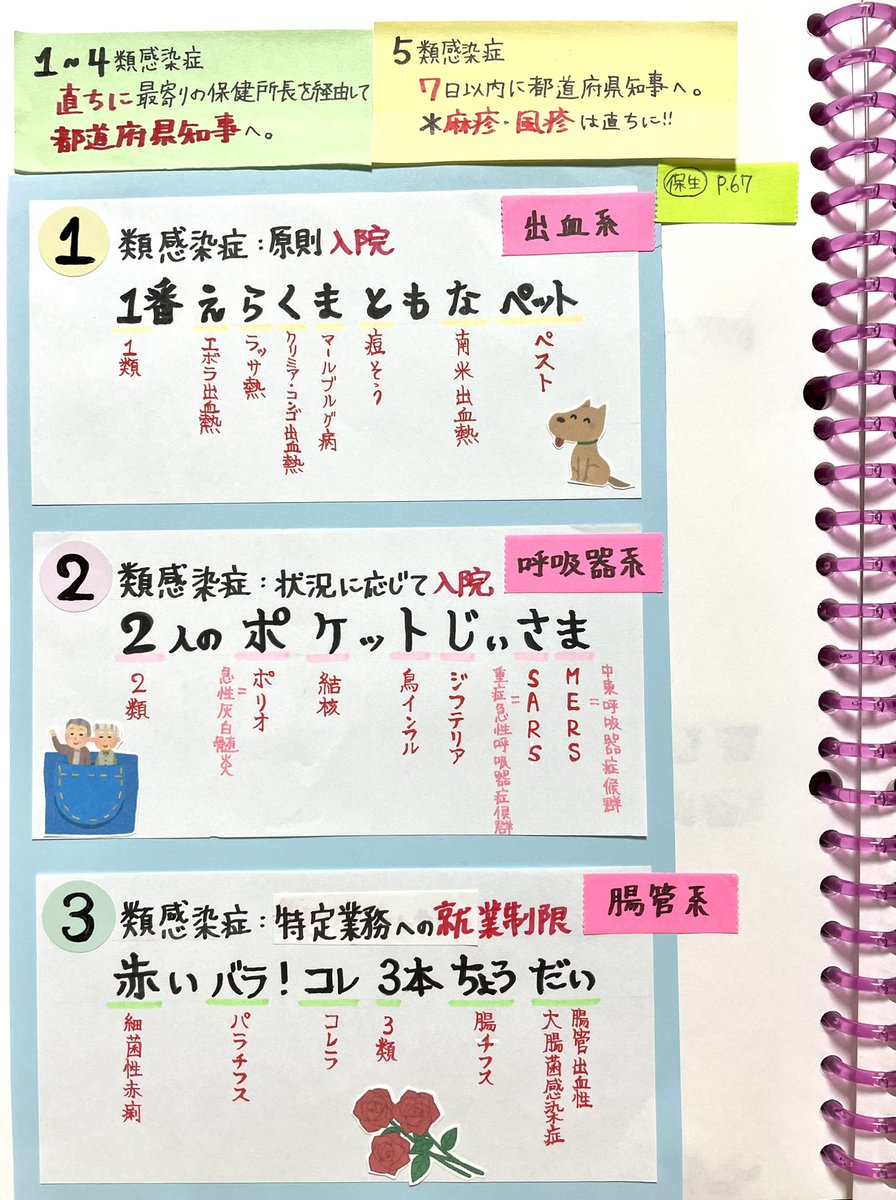 1~4類感染症
直ちに最寄りの保健所長を経由して
都道府県知事へ。
5類感染症
7日以内に都道府県知事へ。
*麻疹・風疹は直ちに!!
保生 P.67
1類感染症:原則入院
出血系
1番えらくまともなペット
1類
エボラ出血熱
ラッサ熱
クリミア・コンゴ出血熱
マールブルグ病
痘そう
南米出血熱
ペスト
2類感染症:状況に応じて入院
呼吸器系
2人のポケットじぃさま
2類
急性灰白髄炎
=
ポリオ
結核
鳥インフル
ジフテリア
重症急性呼吸器症候群
=
SARS
MERS
=
中東呼吸器症候群
3類感染症:特定業務への就業制限
腸管系
赤いバラ!コレ3本ちょうだい
細菌性赤痢
パラチフス
コレラ
3類
腸チフス
腸管出血性
大腸菌感染症